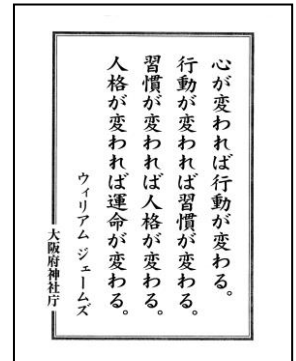 心が変われば行動が変わる。
行動が変われば習慣が変わる。
習慣が変われば人格が変わる。
人格が変われば運命が変わる。
ウィリアム ジェームズ
大阪府神社庁